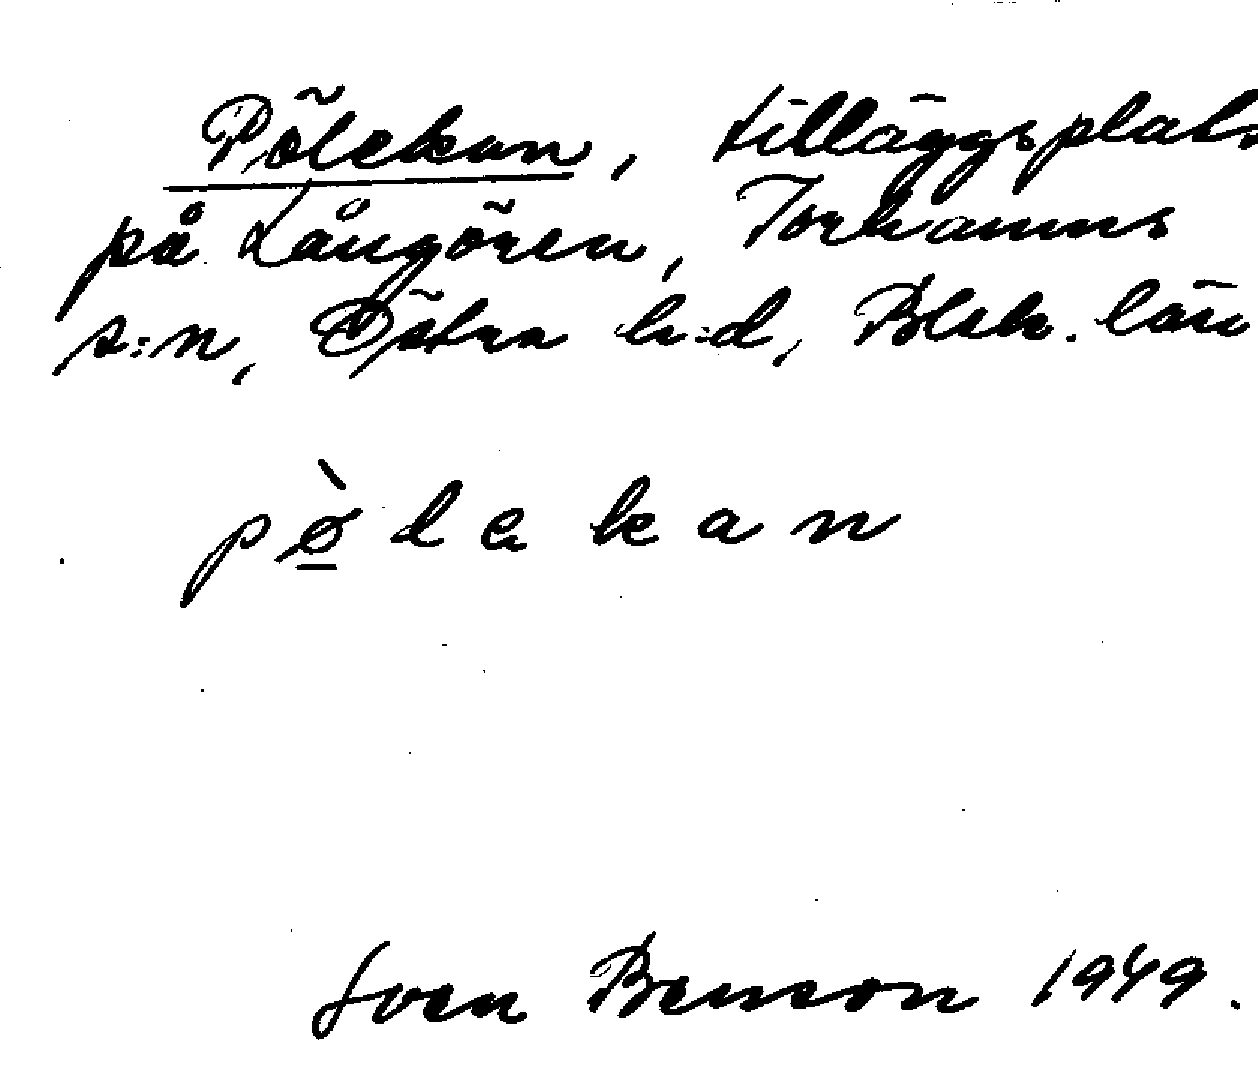 Pölekan, tilläggsplats
på Långören, Torhamns
s:n, Östra h:d, Blek. län
pø̠̀lekan
Sven Benson 1949.